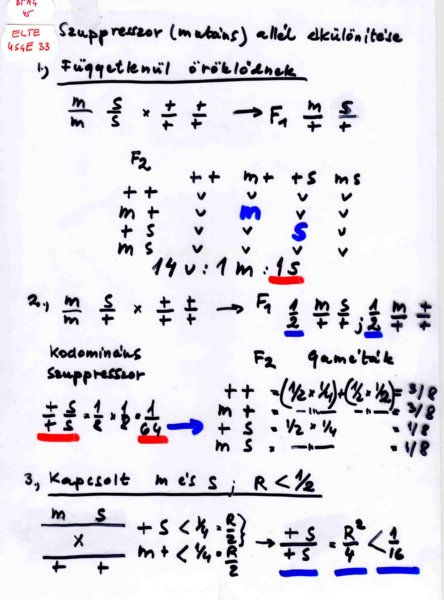 45
ELTE
4S4E 33
Szuppresszor (mutáns) allél elkülönítése
1., Függetlenül öröklődnek
m/m s/s × +/+ +/+ → F1 m/+ s/+
F2
++ m+ +s ms
++ v v v v
m+ v m v v
+s v v s v
ms v v v v
14 v : 1 m : 1 s
2., m/m s/+ × +/+ +/+ → F1 1/2 m/+ s/+ ; 1/2 m/+ +/+
Kodomináns szuppresszor
F2 gaméták
++ = (1/2 × 1/4) + (1/2 × 1/2) = 3/8
m+ = —"— —"— = 3/8
+s = 1/2 × 1/4 = 1/8
ms = —"— = 1/8
+/+ s/s = 1/8 × 1/8 = 1/64 →
3, Kapcsolt m és s ; R < 1/2
m s
×
+ +
+s < 1/4 = R/2
m+ < 1/4 = R/2
→ +s/+s = R²/4 < 1/16